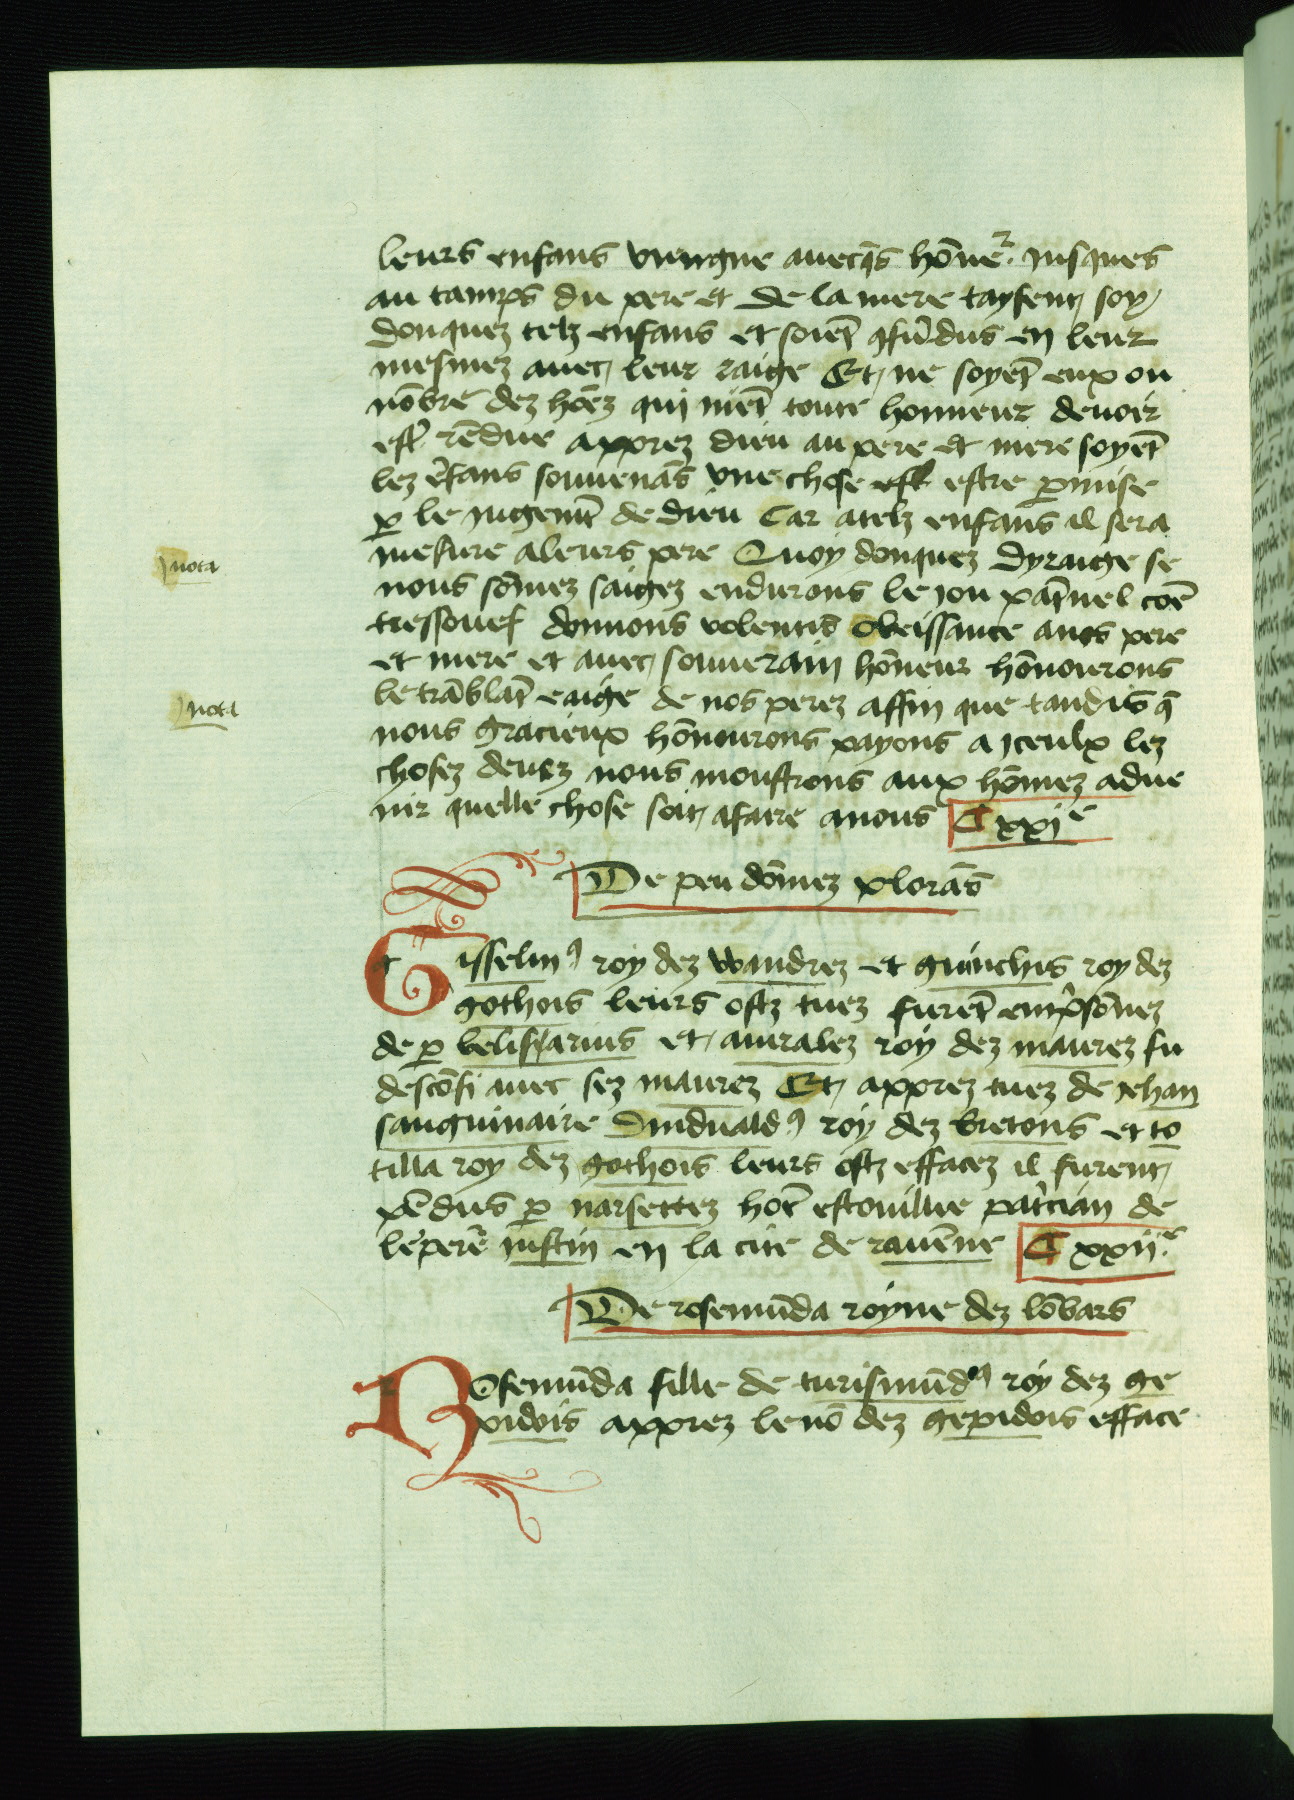 leurs enfans viengne avecq̄s hōne͛ jusques
au tamps du pere et de la mere taysent soy
doncquez telz enfans et soiēt 9fūdus en leur
mesmez avec leur raige Et ne soyēt eux ou
nōbre dez hōez qui niēt toute honneur devoir
est͛ rēdue apprez dieu au pere et mere soyēt
lez ēfans souvenās une chose estre p̱mise
p̱ le jugemēt de dieu Car a telz enfans il sera
nota
mesure a leurs pere Quoy doncquez dyraige se
nous sōmez saigez endurons le jou pat͛nel cōe
tressouef donnons volentis obeissance a nos pere
et mere et avec souverain hōneur hōnourons
nota
le trāblāt eaige de nos perez affin que tandis q̄
nous gracieux hōnourons payons a jceulx lez
chosez deuez nous monstrons aux hōmez adve
nir quelle chose soit a faire a nous C xxjᵉ
De peu dōmez plorās
Gisselin⁹ roy dez wandrez et guinchis roy dez
gothois leurs ostz tuez furēt emp̓sōnez
de p̱ belissarius et amralez roy dez maurez fu
descōfi avec sez maurez Et apprez tuez de jehan
sanguinaire Duiduald⁹ roy dez bretons et to
tilla roy dez gothois leurs ostz effacez il furent
pēdus p̱ narsettez hōe escouillie pat̓cian de
lēpere͛ justin en la cite de ravēne C xxijᵉ
De rosemūda royne dez lōbars
Rosemūda fille de turismūd⁹ roy dez ge
pidois apprez le nō dez gepidois efface